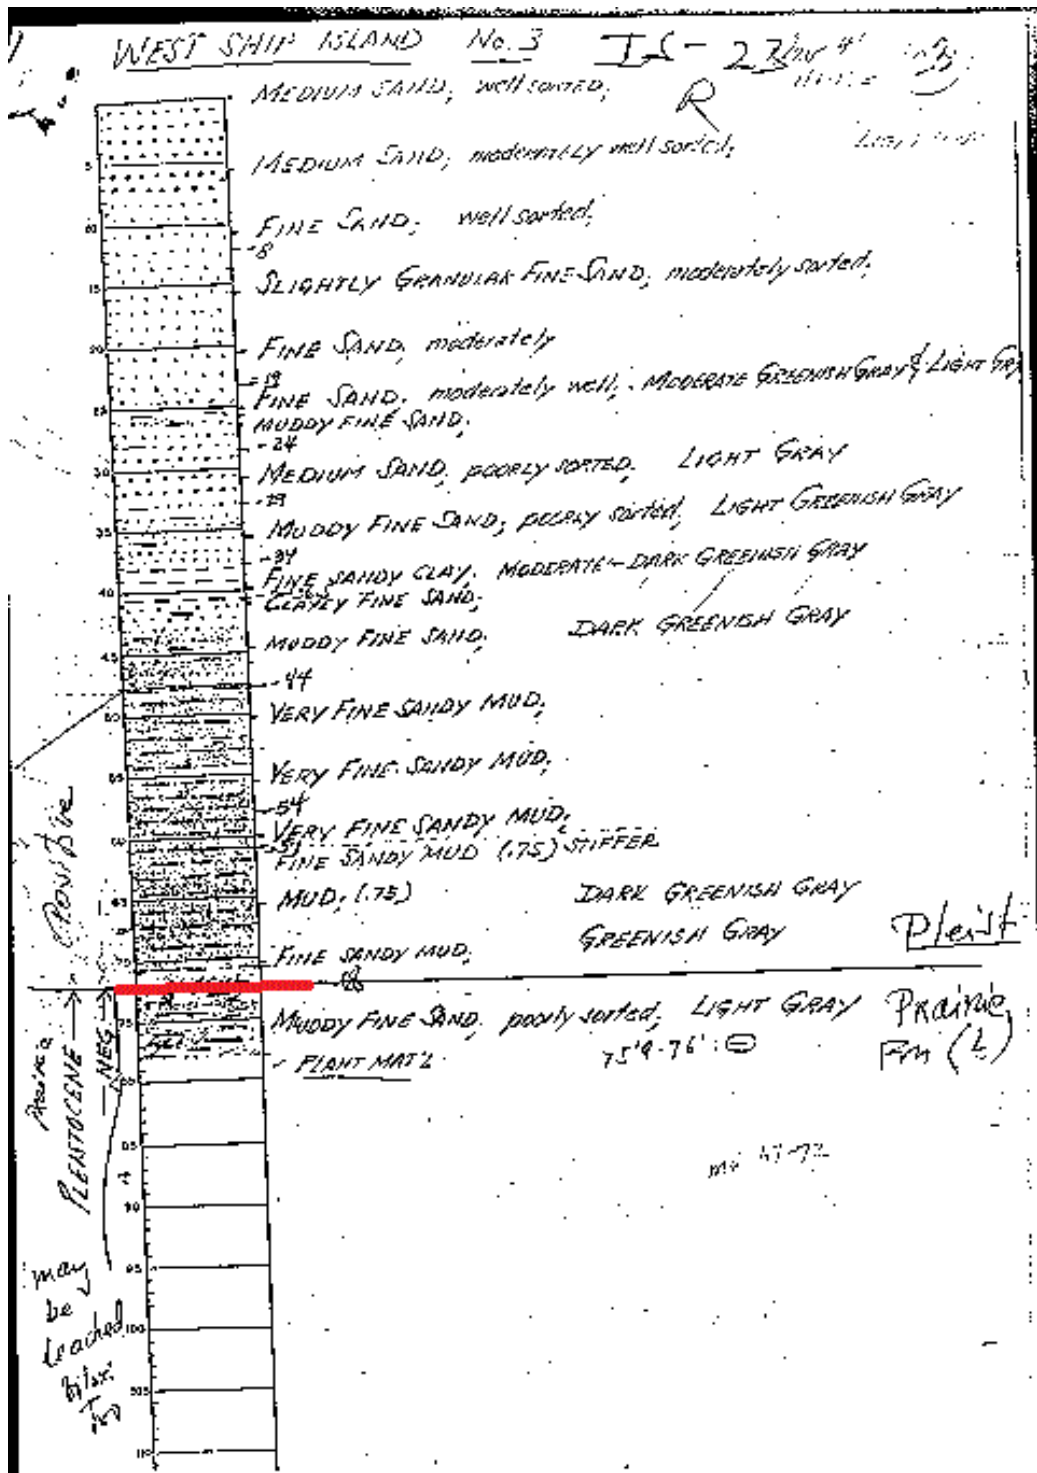 WEST SHIP ISLAND No. 3 IS-23
MEDIUM SAND; well sorted;
R
MEDIUM SAND; moderately well sorted;
5
FINE SAND; well sorted;
10
-8
SLIGHTLY GRANULAR FINE SAND; moderately sorted;
15
FINE SAND; moderately
20
-19
FINE SAND; moderately well; MODERATE GREENISH GRAY & LIGHT GRAY
25
MUDDY FINE SAND;
-24
MEDIUM SAND; poorly sorted; LIGHT GRAY
30
-29
MUDDY FINE SAND; poorly sorted; LIGHT GREENISH GRAY
35
-34
FINE SANDY CLAY; MODERATE-DARK GREENISH GRAY
40
CLAYEY FINE SAND;
MUDDY FINE SAND; DARK GREENISH GRAY
45
-44
VERY FINE SANDY MUD;
50
VERY FINE SANDY MUD;
55
-54
VERY FINE SANDY MUD;
60
FINE SANDY MUD (.75) STIFFER
MUD; (.75) DARK GREENISH GRAY
65
GREENISH GRAY Pleist
FINE SANDY MUD;
70
Positive
MUDDY FINE SAND; poorly sorted; LIGHT GRAY Prairie
75
75'9-76': ⊖ Fm (?)
- PLANT MAT'L
80
Prairie
PLEISTOCENE
NEG
85
90
95
may
be
leached
100
105
110